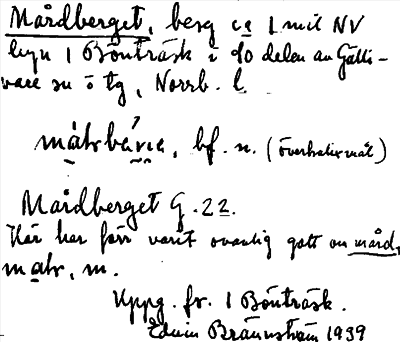 Mårdberget, berg ca 1 mil NV
byn 1 Bönträsk i sö delen av Gälli-
vare sn o tg, Norrb. l.
måhrbárıe, bf. n. (överkalixmål)
Mårdberget G. 22.
Här har förr varit ovanlig gott om mård,
mahr, m.
Uppg. fr. 1 Bönträsk.
Edvin Brännström 1939